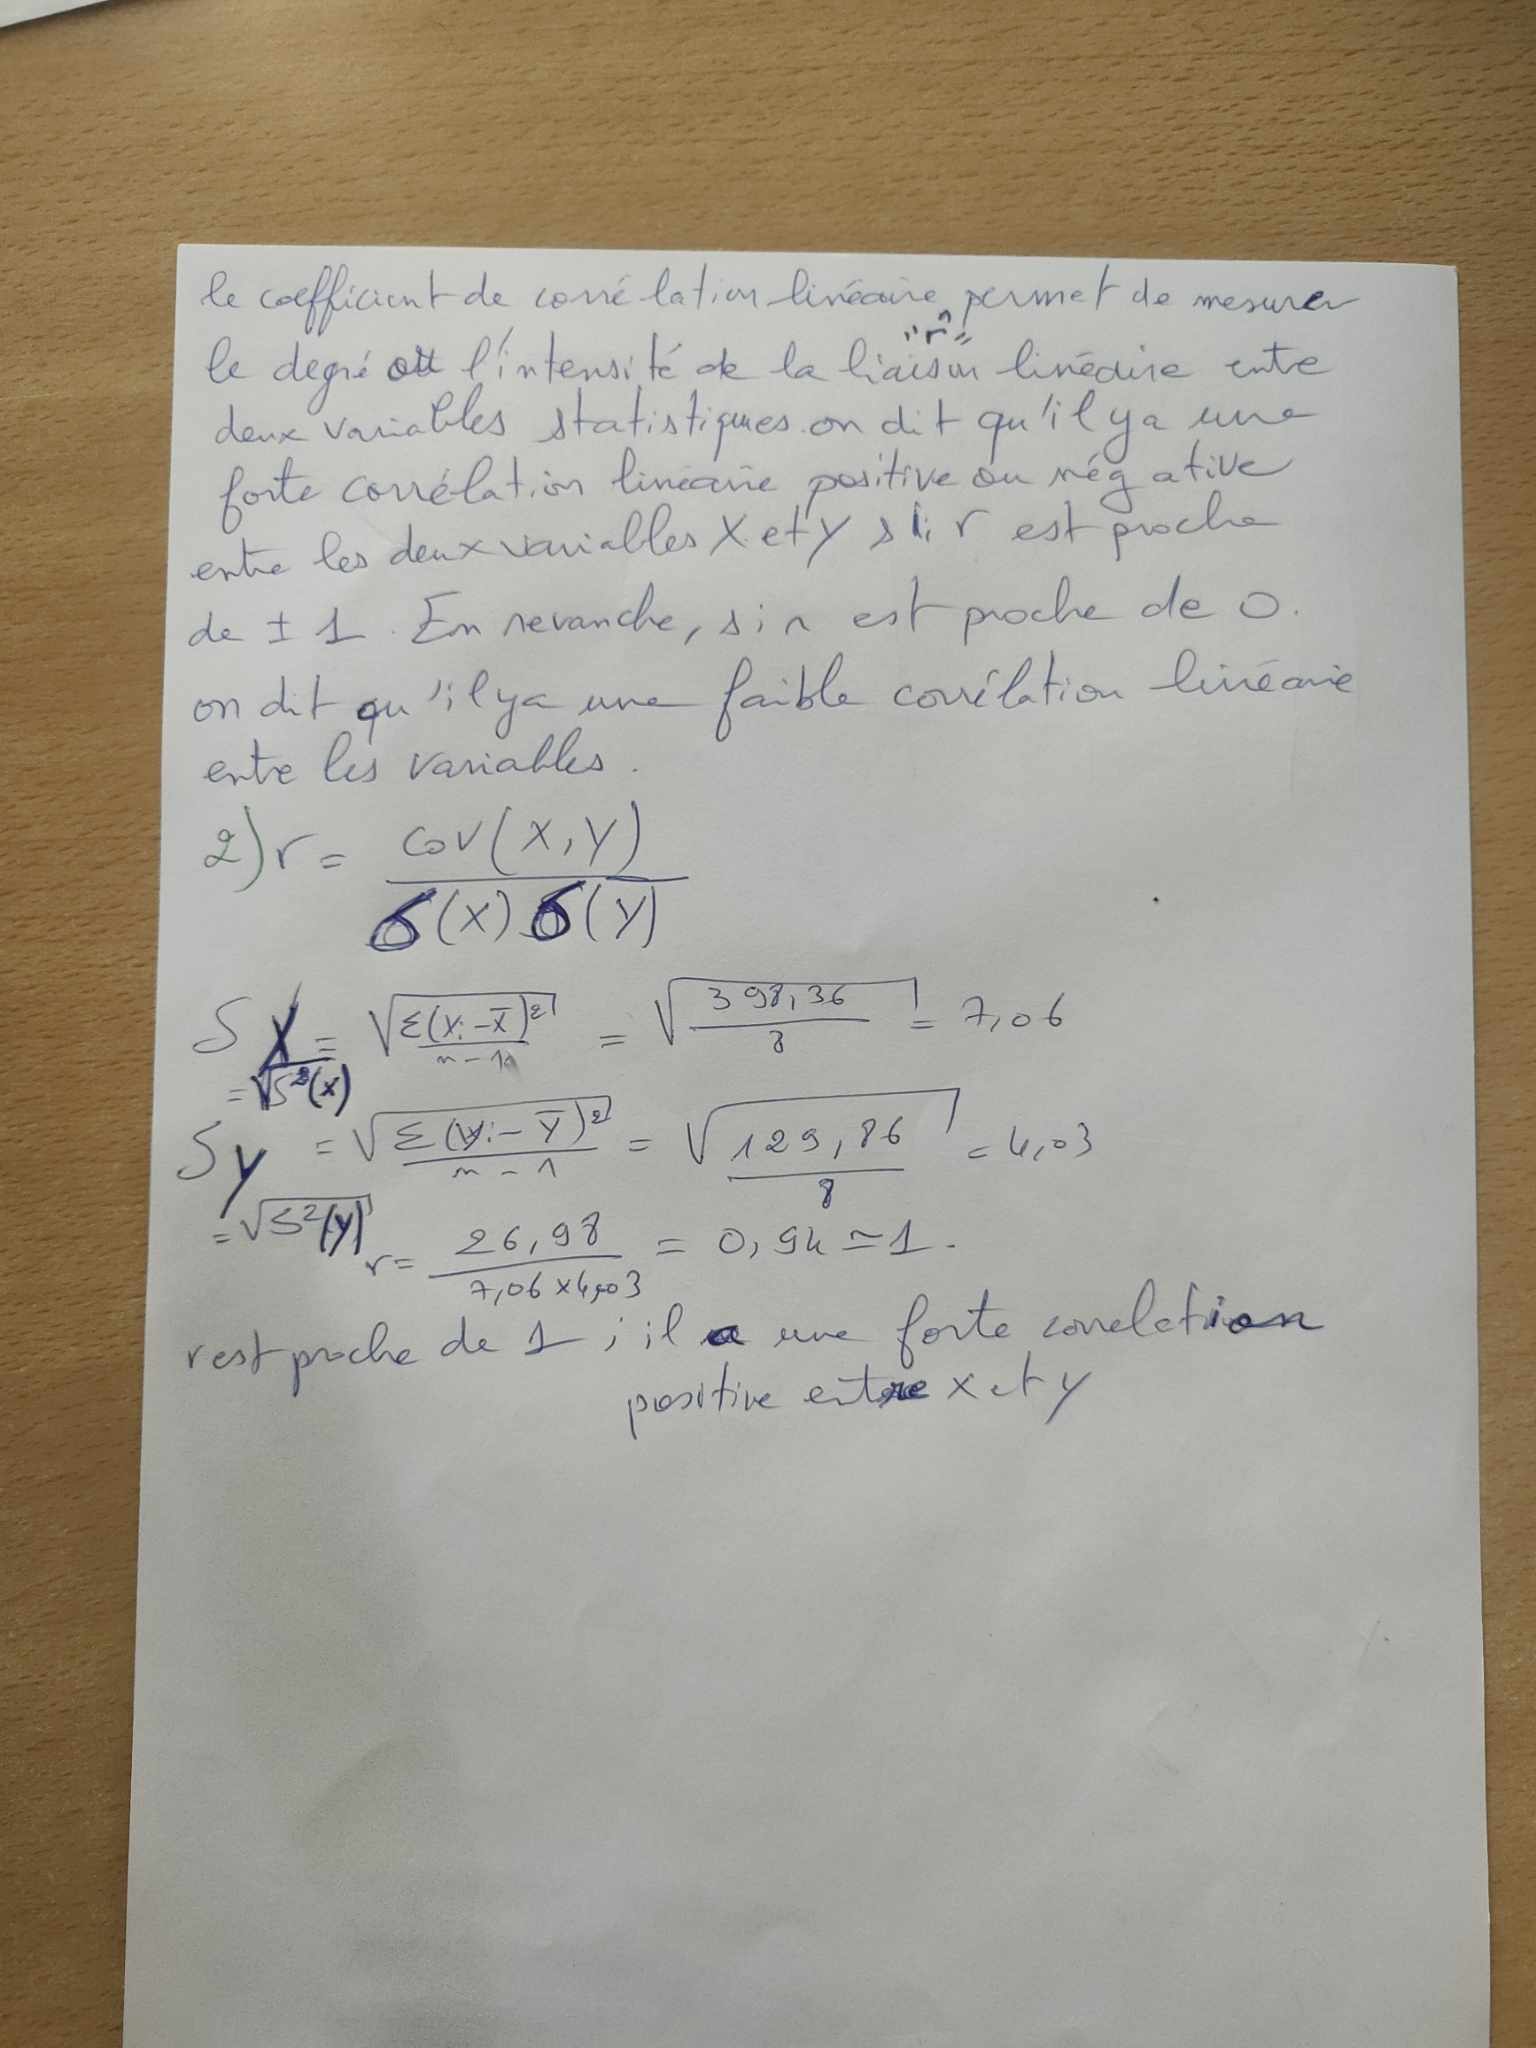 le coefficient de corrélation linéaire permet de mesurer
"r"
le degré ou l'intensité de la liaison linéaire entre
deux variables statistiques. on dit qu'il y a une
forte corrélation linéaire positive ou négative
entre les deux variables X et Y si r est proche
de ± 1. En revanche, si r est proche de 0.
on dit qu'il y a une faible corrélation linéaire
entre les variables.
2) r = cov(X,Y) / б(X) б(Y)
S X = √(Σ(Xi - X̄)² / n-1) = √(398,36 / 8) = 7,06
= √S²(x)
S Y = √(Σ(Yi - Ȳ)² / n-1) = √(129,86 / 8) = 4,03
= √S²(Y)
r = 26,98 / 7,06 × 4,03 = 0,94 ≃ 1.
r est proche de 1 ; il a une forte correlation
positive entre X et Y